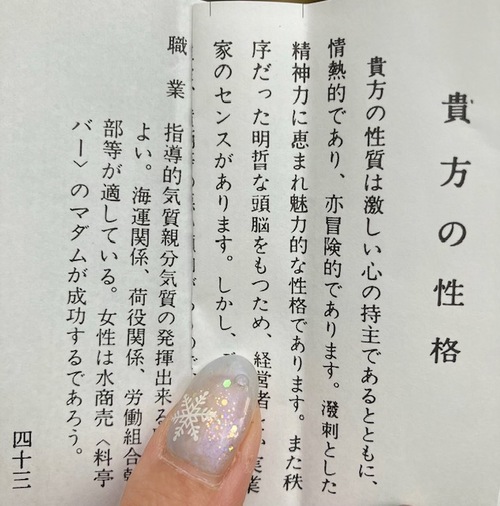 貴方の性格
貴方の性質は激しい心の持主であるとともに、
情熱的であり、亦冒険的であります。潑剌とした
精神力に恵まれ魅力的な性格であります。また秩
序だった明晳な頭脳をもつため、経営者
家のセンスがあります。しかし、
職業
指導的気質親分気質の発揮出来る
よい。海運関係、荷役関係、労働組合
部等が適している。女性は水商売〈料亭
バー〉のマダムが成功するであろう。
四十三